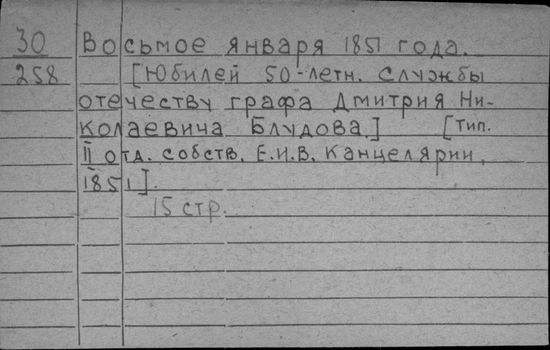 30 Восьмое января 1851 года.
258 [Юбилей 50-летн. службы
отечеству графа Дмитрия Ни-
колаевича Блудова.] [Тип.
II отд. собств. Е.И.В. Канцелярии,
1851].
15 стр.